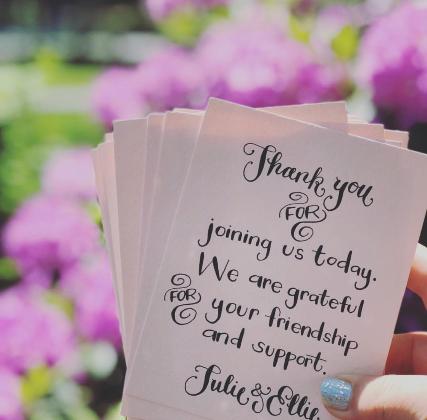 Thank you
FOR
joining us today.
We are grateful
FOR your friendship
and support.
Julie & Ellie